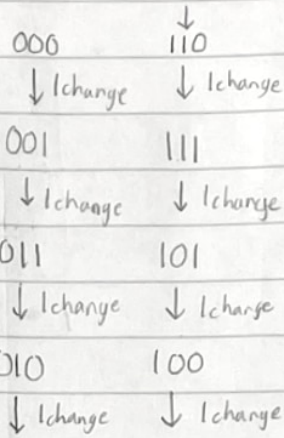 000 110
↓ 1change ↓ 1change
001 111
↓ 1change ↓ 1change
011 101
↓ 1change ↓ 1change
010 100
↓ 1change ↓ 1change